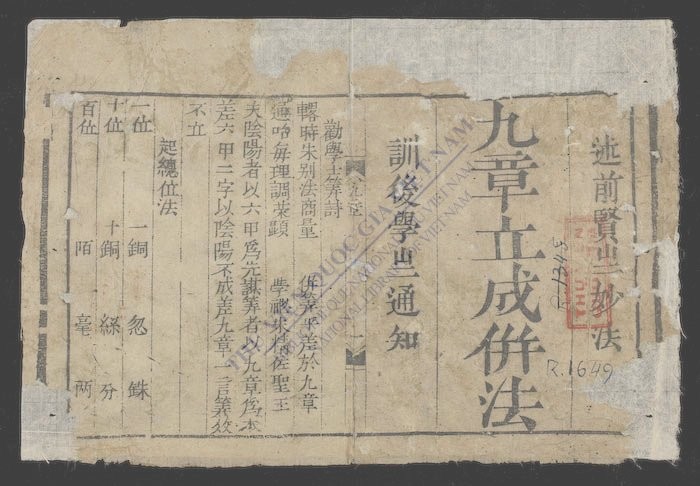 述前賢之妙法
九章立成併法
訓後學之通知
勸學士筭詩
時朱别法商量 併筭平差於九章
通哈每理調萊顯 學視未精佐聖王
夫陰陽者以六甲為先謀筭者以九章為本
差六甲二字以陰陽不成差九章一言筭效
不立
起總位法
一位 一銅 忽 銖
十位 十銅 絲 分
百位 陌 毫 两
R.1343
R.1649
THƯ VIỆN QUỐC GIA VIỆT NAM
NATIONAL LIBRARY OF VIETNAM